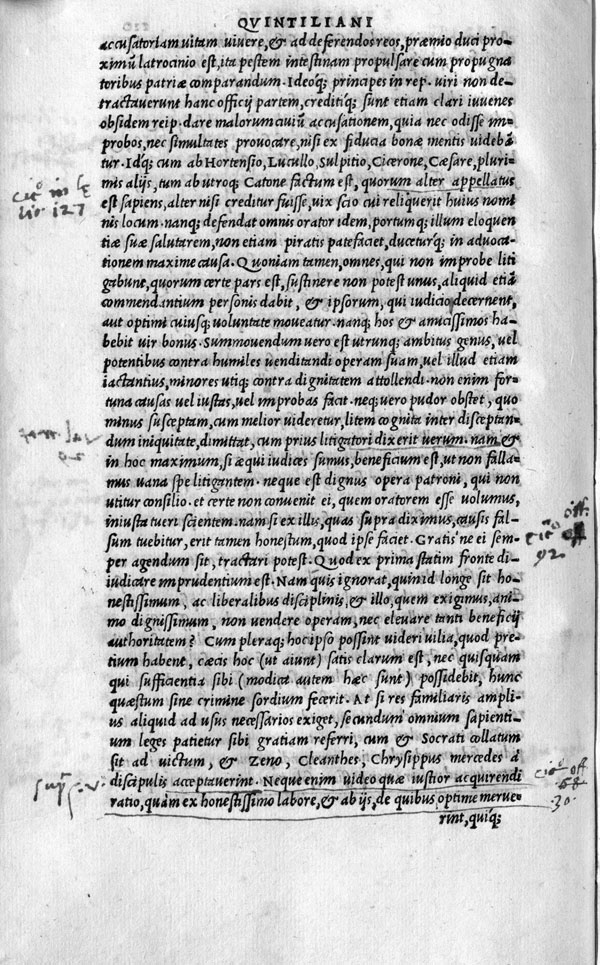 QVINTILIANI
accusatoriam uitam uiuere, & ad deferendos reos, præmio duci pro-
ximũ latrocinio est, ita pestem intestinam propulsare cum propugna
toribus patriæ comparandum. Ideoq; principes in rep. uiri non de-
tractauerunt hanc officij partem, creditiq; sunt etiam clari iuuenes
obsidem reip. dare malorum ciuiũ accusationem, quia nec odisse im-
probos, nec simultates prouocare, nisi ex fiducia bonæ mentis uideba
tur. Idq; cum ab Hortensio, Lucullo, Sulpitio, Cicerone, Cæsare, pluri-
mis alijs, tum ab utroq; Catone factum est, quorum alter appellatus
est sapiens, alter nisi creditur fuisse, uix scio cui reliquerit huius nomi
nis locum. nanq; defendat omnis orator idem, portumq; illum eloquen
tiæ suæ salutarem, non etiam piratis patefaciet, duceturq; in aduoca-
tionem maxime causa. Quoniam tamen, omnes, qui non improbe liti
gabunt, quorum certe pars est, sustinere non potest unus, aliquid etiã
commendantium personis dabit, & ipsorum, qui iudicio decernent,
aut optimi cuiusq; uoluntate moueatur. nanq; hos & amicissimos ha-
bebit uir bonus. Summouendum uero est utrunq; ambitus genus, uel
potentibus contra humiles uenditandi operam suam, uel illud etiam
iactantius, minores utiq; contra dignitatem attollendi. non enim for-
tuna causas uel iustas, uel improbas facit. neq; uero pudor obstet, quo
minus susceptam, cum melior uideretur, litem cognita inter disceptan-
dum iniquitate, dimittat, cum prius litigatori dixerit uerum. nam &
in hoc maximum, si æqui iudices sumus, beneficium est, ut non falla-
mus uana spe litigantem. neque est dignus opera patroni, qui non
utitur consilio. et certe non conuenit ei, quem oratorem esse uolumus,
iniusta tueri scientem. nam si ex illis, quas supra diximus, causis fal-
sum tuebitur, erit tamen honestum, quod ipse faciet. Gratis'ne ei sem-
per agendum sit, tractari potest. Quod ex prima statim fronte di-
iudicare imprudentium est. Nam quis ignorat, quin id longe sit ho-
nestissimum, ac liberalibus disciplinis, & illo, quem exigimus, ani-
mo dignissimum, non uendere operam, nec eleuare tanti beneficij
authoritatem? Cum pleraq; hoc ipso possint uideri uilia, quod pre-
tium habent, cæcis hoc (ut aiunt) satis clarum est, nec quisquam
qui sufficientia sibi (modica autem hæc sunt) possidebit, hunc
quæstum sine crimine sordium fecerit. At si res familiaris ampli-
us aliquid ad usus necessarios exiget, secundum omnium sapienti-
um leges patietur sibi gratiam referri, cum & Socrati collatum
sit ad uictum, & Zeno, Cleanthes, Chrysippus mercedes à
discipulis acceptauerint. Neque enim uideo quæ iustior acquirendi
ratio, quàm ex honestissimo labore, & ab ijs, de quibus optime merue-
rint, quiq;
127
off.
92
off
68
.30.